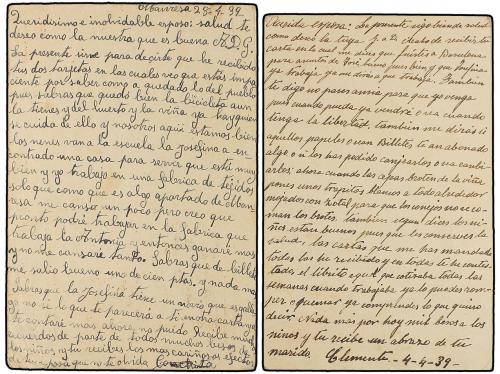 Olbanresa 28-4-39
Queridisimo e inolvidable esposo: salud te
deseo como la nuestra que es buena A.D.G.
La presente sirve para decirte que he recibido
tus dos tarjetas en las cuales veo que estás impa-
ciente para saber como a quedado lo del pueblo
pues sabras que quedó bien la bicicleta aun
la tienes y del huerto y la viña ya hay quien
se cuida de ello y nosotros aqui estamos bien
los nenes van a la escuela la Josefina a en-
contrado una casa para servir que está muy
bien y yo trabajo en una fabrica de tejidos
solo que como que es algo apartado de Olban-
resa me canso un poco pero creo que
pronto podré trabajar en la fabrica que
trabaja la Antonia y entonces ganaré mas
y no me cansaré tanto. Sabras que de billetes
me salio bueno uno de cien ptas. y nada mas
Sabras que la Josefina tiene un novio que es galle-
go no se lo que te parecerá a ti en otra carta ya
te contaré mas ahora no puedo Recibe muchos
recuerdos de parte de todos muchos besos de
los niños y tu recibes los mas cariñosos afectos
de tu esposa que no te olvida Conchita
Querida esposa: La presente sigo bien de salud
como deseo la tuya. A.D. Acabo de recibir tu
carta en la cual me dices que fuistes a Barcelona
para asuntos de José bueno pues bien y que Josefina
ya trabaja ya me dirás a que trabaja. Tambien
te digo no pases ansia para que yo venga
pues cuando pueda ya vendré o sea cuando
tenga la libertad, tambien me dirás si
aquellos papeles o sean Billetes te an abonado
algo o si los has podido canjearlos o sea cambi-
arlos; ahora cuando las cepas broten de la viña
pones unos trapitos blancos a todo alrededor
mojados con zotal para que los conejos no se co-
man los brotes. tambien me dices los ni-
ños estan buenos pues que los conserves la
salud, las cartas que me has mandado
todas las he recibido y en todas te he contes-
tado. el librito aquel que cotizaba todas las
semanas cuando trabajaba ya lo puedes rom-
per o quemar ya comprendes lo que quiero
decir. Nada mas por hoy mil besos a los
ninos y tu recibe un abrazo de tu
marido Clemente -4-4-39-